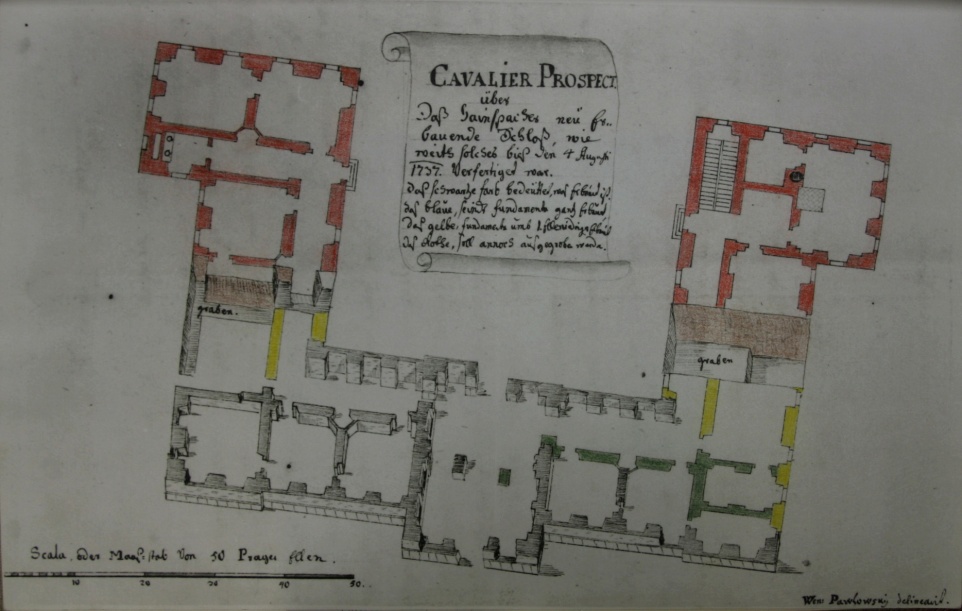 CAVALIER PROSPECT
über
Daß Hainspacher neü Er-
bauende Schloß, wie
weith solches biß den 4 Augusti
1737. Verfertiget war.
Daß schwartze farb bedeütet, was
das blaue, seindt fundamenta gantz
das gelbe, fundamenta umb
das Rothe, soll annoch ausgegraben werden.
graben.
graben
Scala. oder Maaßstab Von 50 Prager Ellen.
10 20 30 40 50.
Wens Pawlowskÿ delineavit.